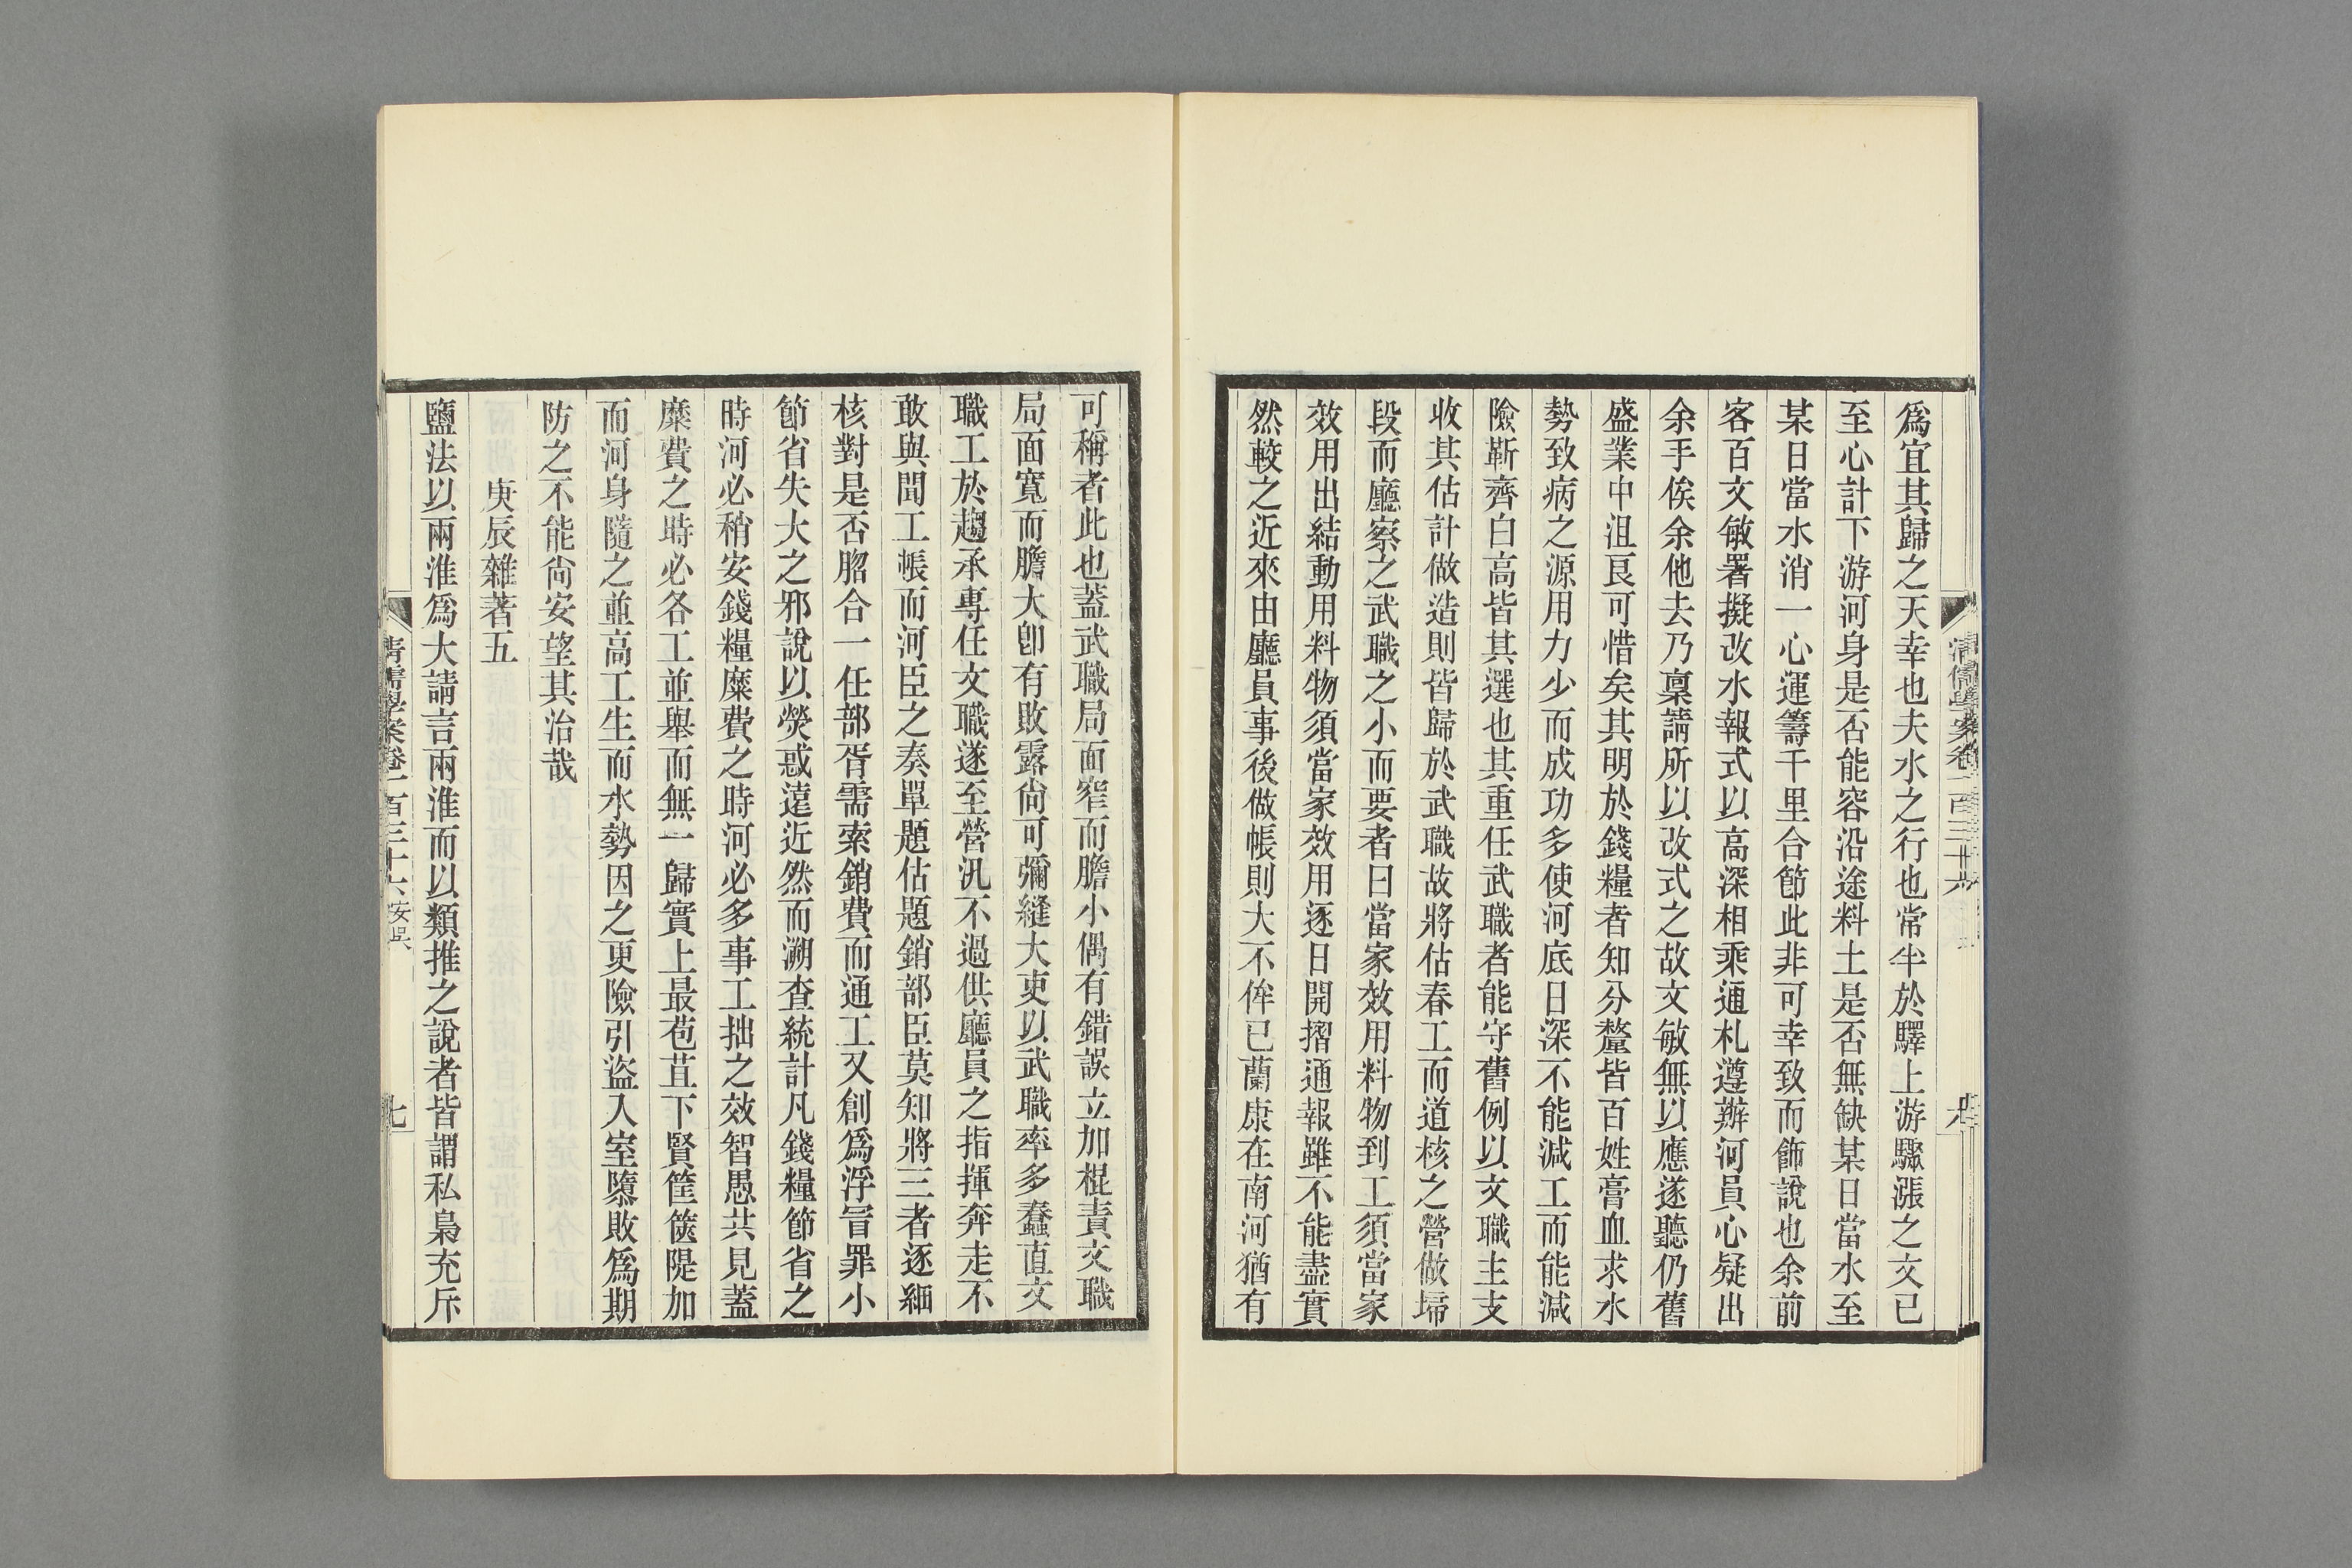 爲宜其歸之天幸也夫水之行也常半於驛上游驟漲之文已
至心計下游河身是否能容沿途料土是否無缺某日當水至
某日當水消一心運籌千里合節此非可幸致而飾說也余前
客百文敏署擬改水報式以高深相乘通札遵辦河員心疑出
余手俟余他去乃稟請所以改式之故文敏無以應遂聽仍舊
盛業中沮良可惜矣其明於錢糧者知分釐皆百姓膏血求水
勢致病之源用力少而成功多使河底日深不能減工而能減
險靳齊白高皆其選也其重任武職者能守舊例以文職主支
收其估計做造則皆歸於武職故將估春工而道核之營做埽
段而廳察之武職之小而要者曰當家效用料物到工須當家
效用出結動用料物須當家效用逐日開摺通報雖不能盡實
然較之近來由廳員事後做帳則大不侔已蘭康在南河猶有
可稱者此也蓋武職局面窄而膽小偶有錯誤立加棍責文職
局面寬而膽大卽有敗露尙可彌縫大吏以武職率多蠢直文
職工於趨承專任文職遂至營汛不過供廳員之指揮奔走不
敢與聞工帳而河臣之奏單題估題銷部臣莫知將三者逐細
核對是否脗合一任部胥需索銷費而通工又創爲浮冒罪小
節省失大之邪說以熒惑遠近然而溯查統計凡錢糧節省之
時河必稍安錢糧糜費之時河必多事工拙之效智愚共見蓋
糜費之時必各工並舉而無一歸實上最苞苴下賢筐篋隄加
而河身隨之並高工生而水勢因之更險引盜入室隳敗爲期
防之不能尙安望其治哉
庚辰雜著五
鹽法以兩淮爲大請言兩淮而以類推之說者皆謂私梟充斥
清儒學案卷一百三十六 安吳
七